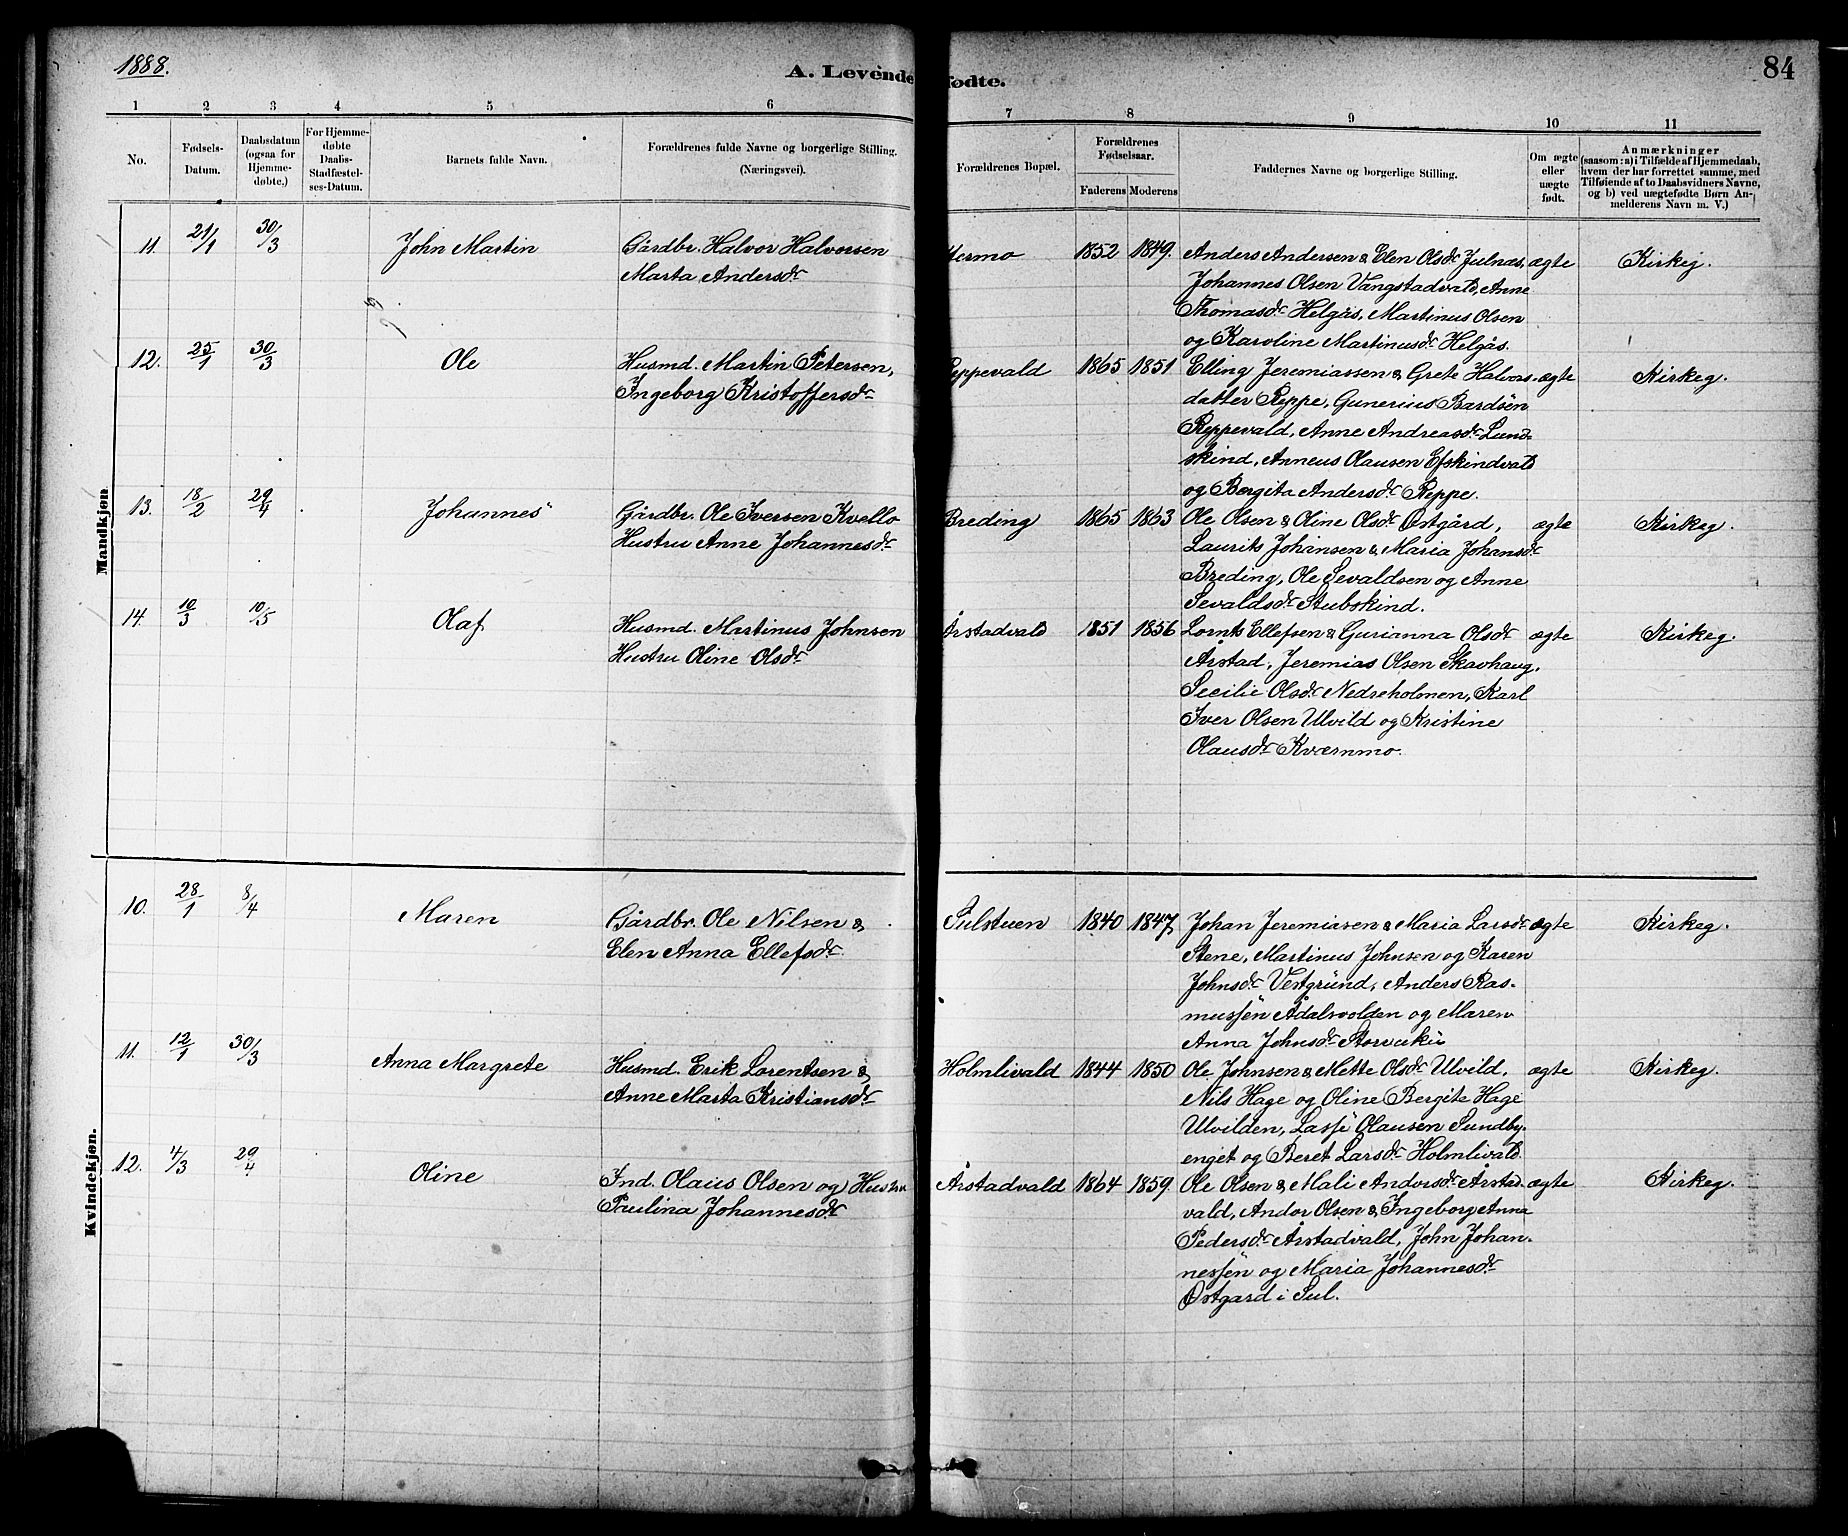 1888.
A. Levende fødte.
84
1 2 3 4 5 6 7 8 9 10 11
No.
Fødsels-
Datum.
Daabsdatum
(ogsaa for
Hjemme-
døbte.)
For Hjemme-
døbte
Daabs-
Stadfæstel-
ses-Datum.
Barnets fulde Navn.
Forældrenes fulde Navne og borgerlige Stilling.
(Næringsvei).
Forældrenes Bopæl.
Forældrenes
Fødselsaar.
Faderens Moderens
Faddernes Navne og borgerlige Stilling.
Om ægte
eller
uægte
født.
Anmærkninger
(saasom: a) i Tilfælde af Hjemmedaab,
hvem der har forrettet samme, med
Tilføiende af to Daabsvidners Navne,
og b) ved uægtefødte Børn An-
melderens Navn m. V.)
Mandkjøn
11. 21/1 30/3 John Martin Gårdbr. Halvor Halvorsen 1852 1849. Anders Andersen & Elen Olsdr Julnæs, ægte Kirkeg.
Marta Andersdr Johannes Olsen Vangstadvald, Anne
Thomasdr Helgås, Martinus Olsen
og Karoline Martinusdr Helgås.
12. 25/1 30/3 Ole Husmd. Martin Petersen, Reppevald 1865 1851 Elling Jeremiassen & Grete Halvors- ægte Kirkeg.
Ingeborg Kristoffersdr datter Reppe, Gunerius Bardsen
Reppevald, Anne Andreasdr Lund-
skind, Anneus Olausen Efskindvald
og Bergita Andersdr Reppe.
13. 18/2 29/4 Johannes Gårdbr. Ole Iversen Kvello Breding 1865 1863 Ole Olsen & Oline Olsdr Østgård, ægte Kirkeg.
Hustru Anne Johannesdr Laurits Johansen & Maria Johansdr
Breding, Ole Sevaldsen og Anne
Sevaldsdr Stubskind.
14. 10/3 10/5 Olaf Husmd. Martinus Johnsen Årstadvald 1851 1856 Lornts Ellefsen & Gurianna Olsdr ægte Kirkeg.
Hustru Oline Olsdr Årstad, Jeremias Olsen Skavhaug,
Secilie Olsdr Nedreholmen, Karl
Iver Olsen Ulvild og Kristine
Olausdr Kværnmo.
Kvindekjøn.
10. 28/1 8/4 Maren Gårdbr. Ole Nilsen & Sulstuen 1840 1847 Johan Jeremiasen & Maria Larsdr ægte Kirkeg.
Elen Anna Ellefsdr Stene, Martinus Johnsen og Karen
Johnsdr Vestgrund, Anders Ras-
mussen Ådalsvolden og Maren
Anna Johnsdr
11. 12/1 30/3 Anna Margrete Husmd. Erik Lorentsen & Holmlivald 1844 1850 Ole Johnsen & Mette Olsdr Ulvild, ægte Kirkeg.
Anne Marta Kristiansdr Nils Hage og Oline Bergite Hage
Ulvilden, Lasse Olausen Sundby-
enget og Beret Larsdr Holmlivald.
12. 4/3 29/4 Oline Ind. Olaus Olsen og Hustru Årstadvald 1864 1859. Ole Olsen & Mali Andorsdr Årstad- ægte Kirkeg.
Paulina Johannesdr vald, Andor Olsen & Ingeborg Anna
Pedersdr Årstadvald, John Johan-
nessen og Maria Johannesdr
Østgard i Sul.